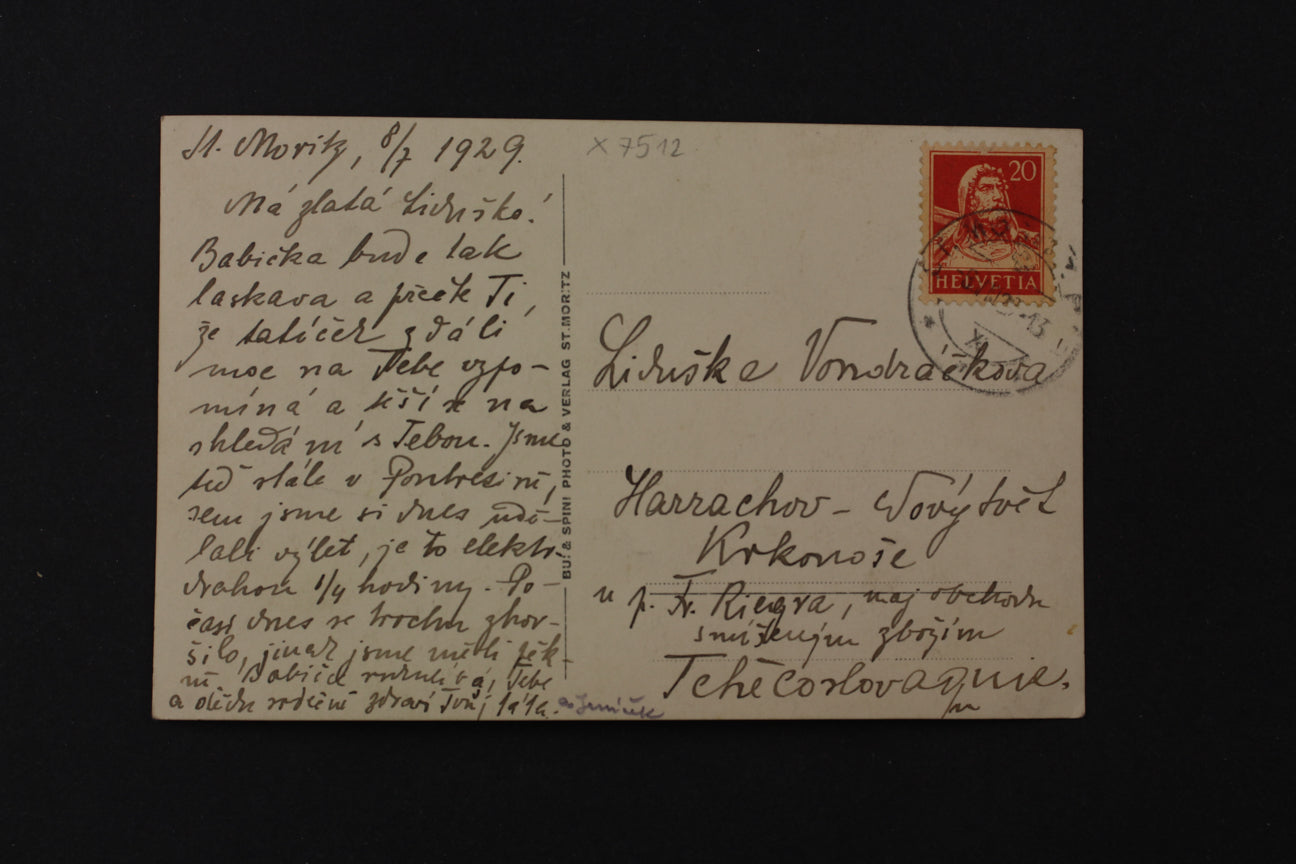 St. Moritz, 8/7 1929.
Má zlatá Liduško!
Babička bude tak
laskava a přečte Ti,
že tatíček z dáli
moc na Tebe vzpo-
míná a těší se na
shledání s Tebou. Jsme
teď stále v Pontresině,
sem jsme si dnes udě-
lali výlet, je to elektr.
drahou 1/4 hodiny. Po-
časí dnes se trochu zhor-
šilo, jinak jsme měli pěk-
né. Babičce ruku líbá, Tebe
a srdečně zdraví Tvůj táta.
X 7512
BUI & SPINI PHOTO & VERLAG ST. MORITZ
20
HELVETIA
Liduška Vondračkova
Harrachov - Nový Svět
Krkonoše
u p. Fr. Riegra, maj obchodu
smíšeným zbožím
Tchécoslovaquie.